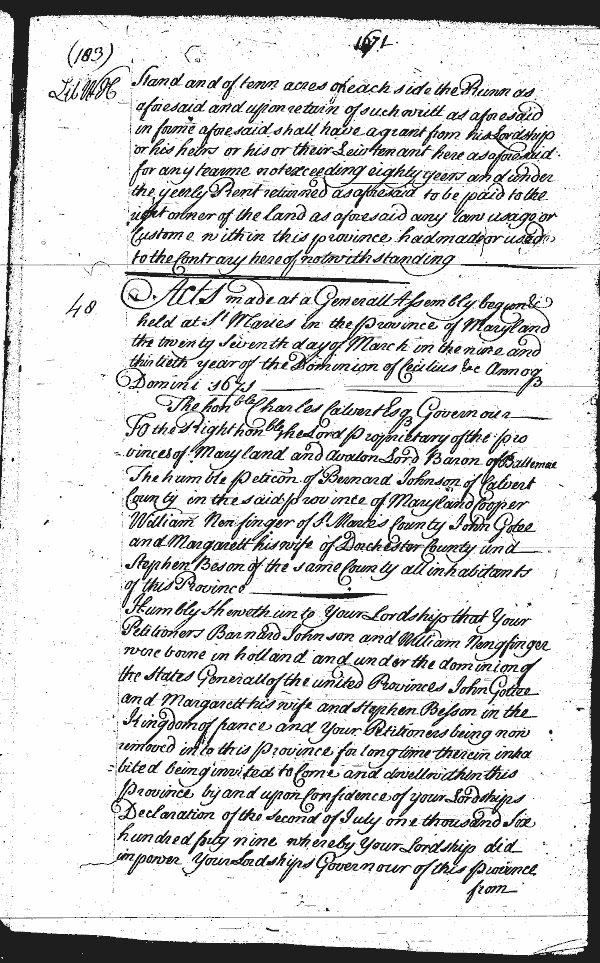 (183)
1671
Lib WH
Stand and of tenn acres of each side the Runn as
aforesaid and upon retain of such writt as aforesaid
in forme aforesaid shall have a grant from his Lordship
or his heirs or his or their Leiutenant here as aforesaid
for any tearme not exceeding eighty yeers and under
the yeerly Rent returned as aforesaid to be paid to the
right owner of the Land as aforesaid any law usage or
Custome within this province had made or used
to the Contrary hereof notwithstanding
48
Acts made at a Generall Assembly begun &c
held at St Maries in the Province of Maryland
the twenty seventh day of March in the nine and
thirtieth year of the Dominion of Cecilius &c Annoq
Domini 1671
The honble Charles Calvert Esq Governour
To the Right honble the Lord Proprietary of the pro
vinces of Maryland and Avalon Lord Baron of Baltemae
The humble Peticon of Bernard Johnson of Calvert
County in the said province of Maryland Cooper
William Nenfinger of St Maries County John Gotee
and Margarett his wife of Dorchester County and
Stephen Beson of the same County all inhabitants
of this Province
Humbly Sheweth unto Your Lordship that Your
Petitioners Barnard Johnson and William Nengfinger
were borne in holland and under the dominion of
the States Generall of the united Provinces John Gottee
and Margarett his wife and Stephen Besson in the
Kingdom of france and Your Petitioners being now
removed into this Province for long time therein inha
bited being invited to Come and dwell within this
Province by and upon Confidence of your Lordships
Declaration of the Second of July one thousand Six
hundred forty nine whereby Your Lordship did
impower Your Lordships Governour of this Province
from